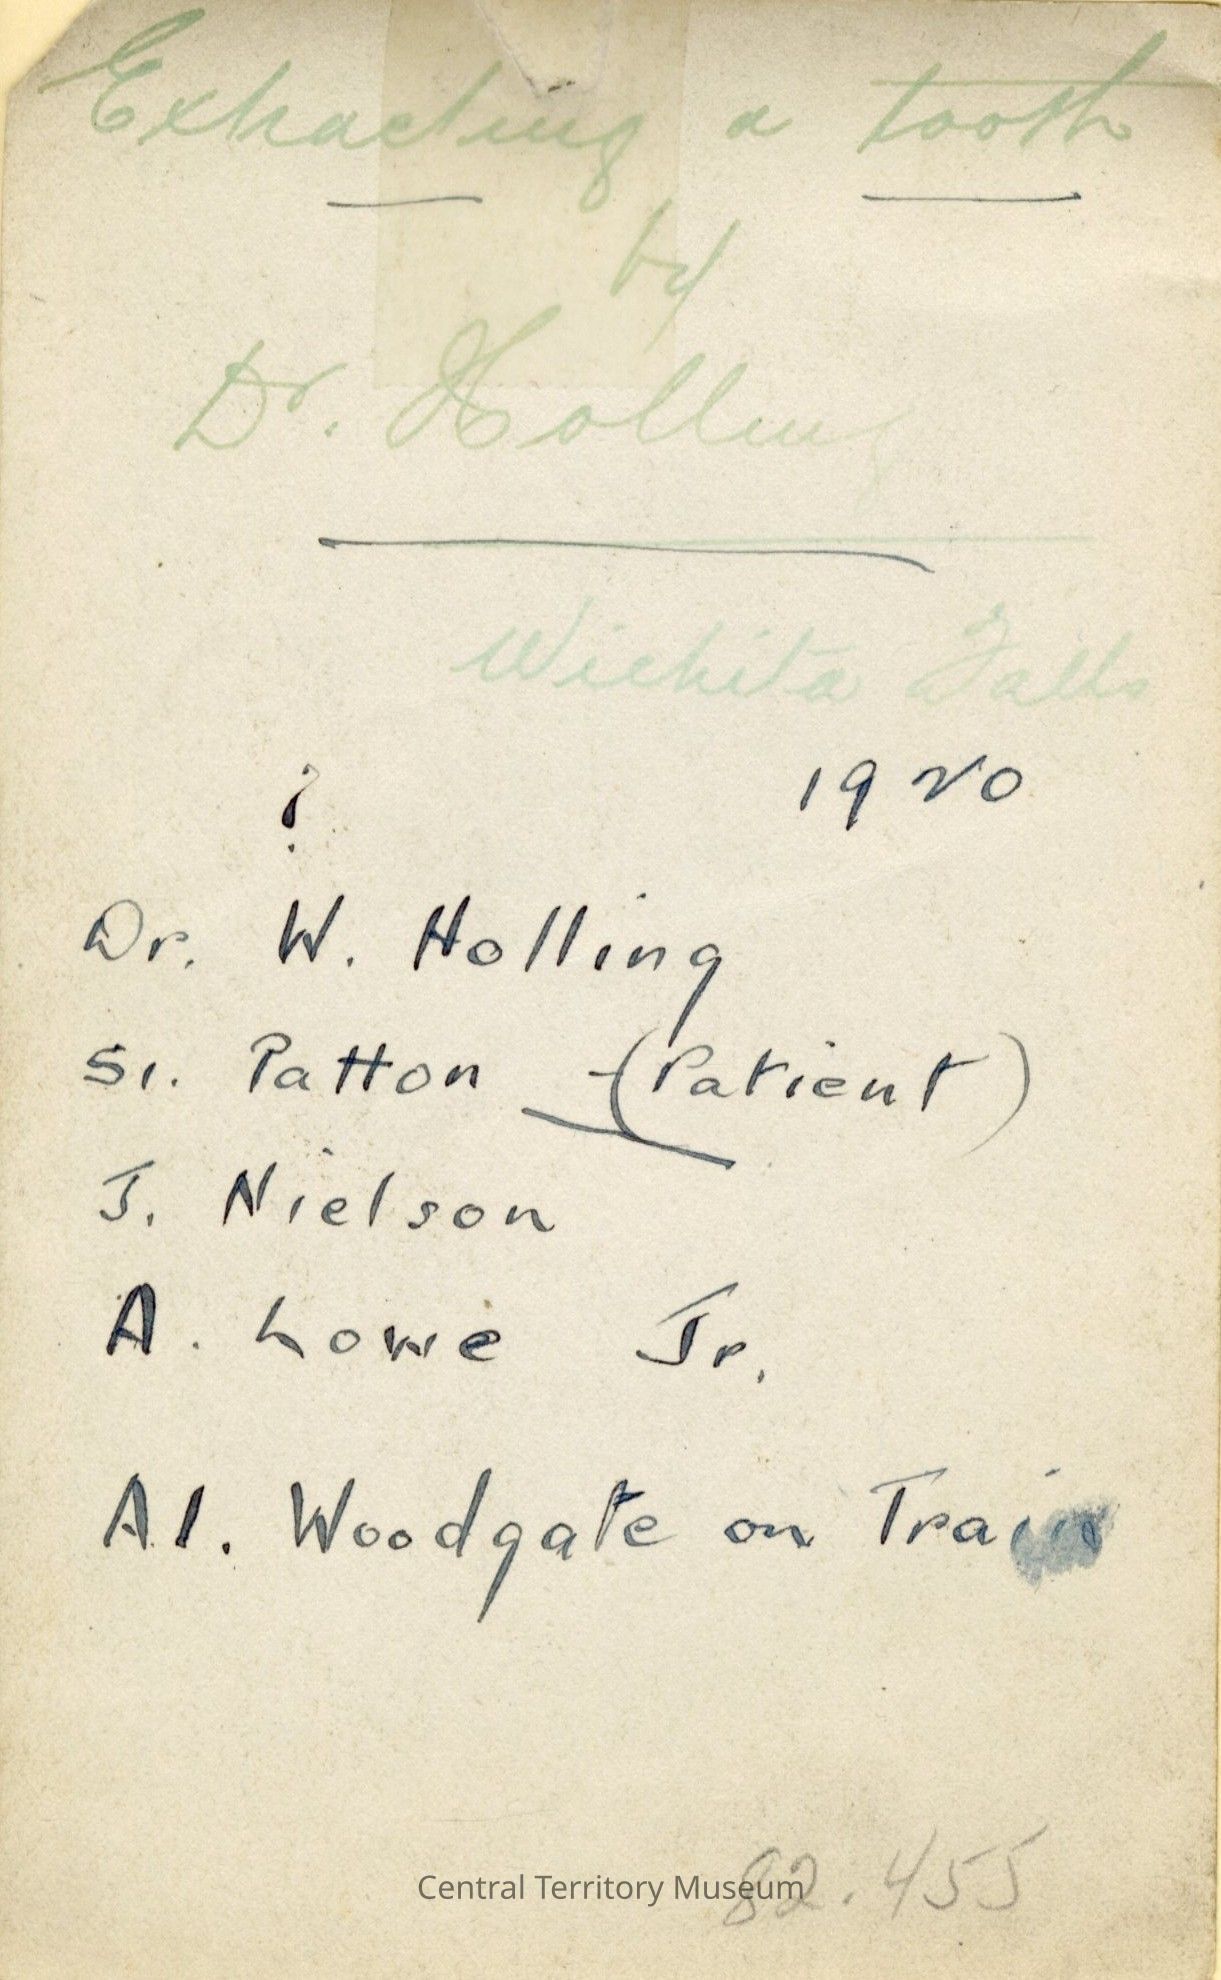 Extracting a tooth
by
Dr. Holling
Wichita Falls
? 1920
Dr. W. Holling
Si. Patton - (Patient)
J. Nielson
A. Lowe Jr.
Al. Woodgate on Train
82.455
Central Territory Museum